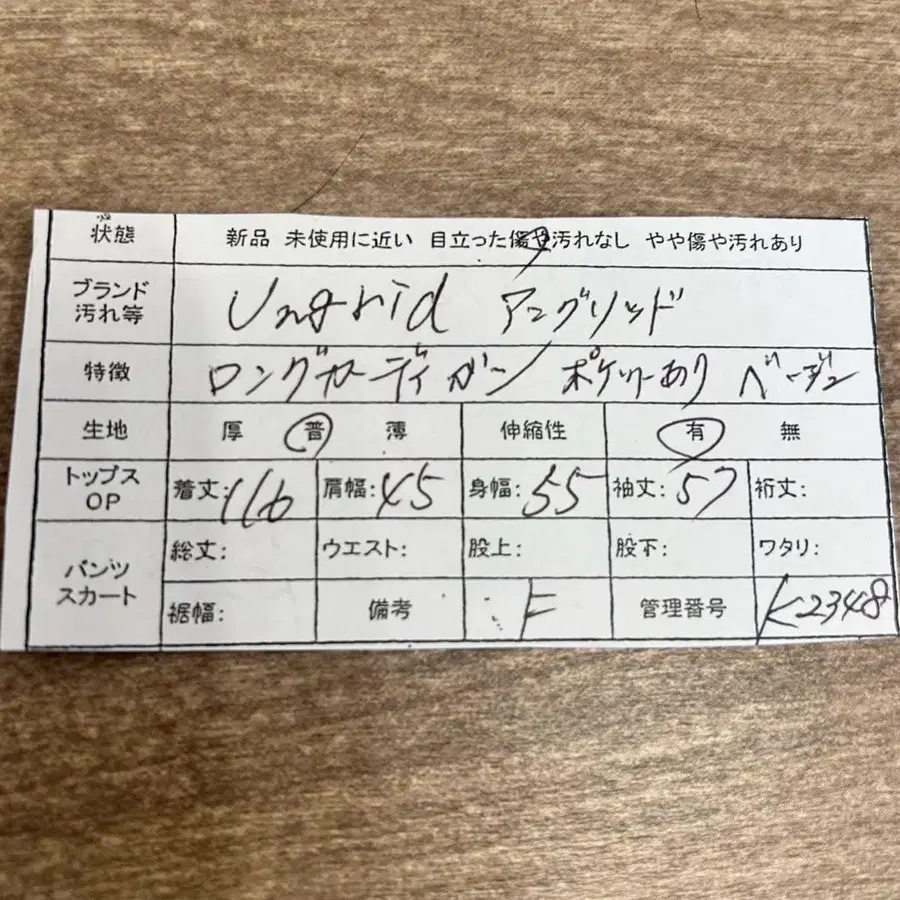 状態 新品 未使用に近い 目立った傷や汚れなし やや傷や汚れあり
ブランド 汚れ等 Ungrid アングリッド
特徴 ロングカーディガン ポケットあり ベージュ
生地 厚 普 薄 伸縮性 有 無
トップス OP 着丈:116 肩幅:45 身幅:55 袖丈:57 裄丈:
パンツ スカート 総丈: ウエスト: 股上: 股下: ワタリ:
裾幅: 備考 F 管理番号 K2348